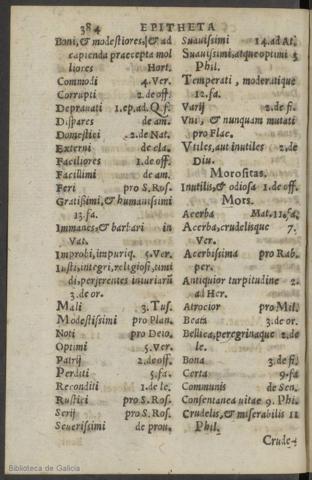 384 EPITHETA
Boni, & modestiores, & ad
capienda præcepta mol
liores Hort.
Commodi 4. Ver.
Corrupti 2. de off.
Deprauati 1. ep. ad. Q. f.
Dispares de am.
Domestici 2. de Nat.
Externi de cla.
Faciliores 1. de off.
Facillimi de am.
Feri pro S. Ros.
Gratissimi, & humanissimi
13. fa.
Immanes, & barbari in
Vat.
Improbi, impuriq. 5. Ver.
Iusti, integri, religiosi, timi
di, perferentes iniuriarũ
3. de or.
Mali 3. Tus.
Modestissimi pro Plan.
Noti pro Deio.
Optimi 5. Ver.
Patrij 2. de off.
Perditi 5. fa.
Reconditi 1. de le.
Rustici pro S. Ros.
Serij pro S. Ros.
Seuerissimi de prou.
Suauissimi 14. ad At.
Suauissimi, atque optimi 5
Phil.
Temperati, moderatique
12. fa.
Varij 2. de fi.
Vni, & nunquam mutati
pro Flac.
Vtiles, aut inutiles 2. de
Diu.
Morositas.
Inutilis, & odiosa 1. de off.
Mors.
Acerba Mat. 11. fa.
Acerba, crudelisque 7.
Ver.
Acerbissima pro Rab.
per.
Antiquior turpitudine 2.
ad Her.
Atrocior pro Mil.
Beata 3. de or.
Bellica, peregrinaque 2. de
le.
Bona 3. de fi.
Certa 9. fa
Communis de Sen.
Consentanea uitae 9. Phi.
Crudelis, & miserabilis 11
Phil.
Crude-
Biblioteca de Galicia